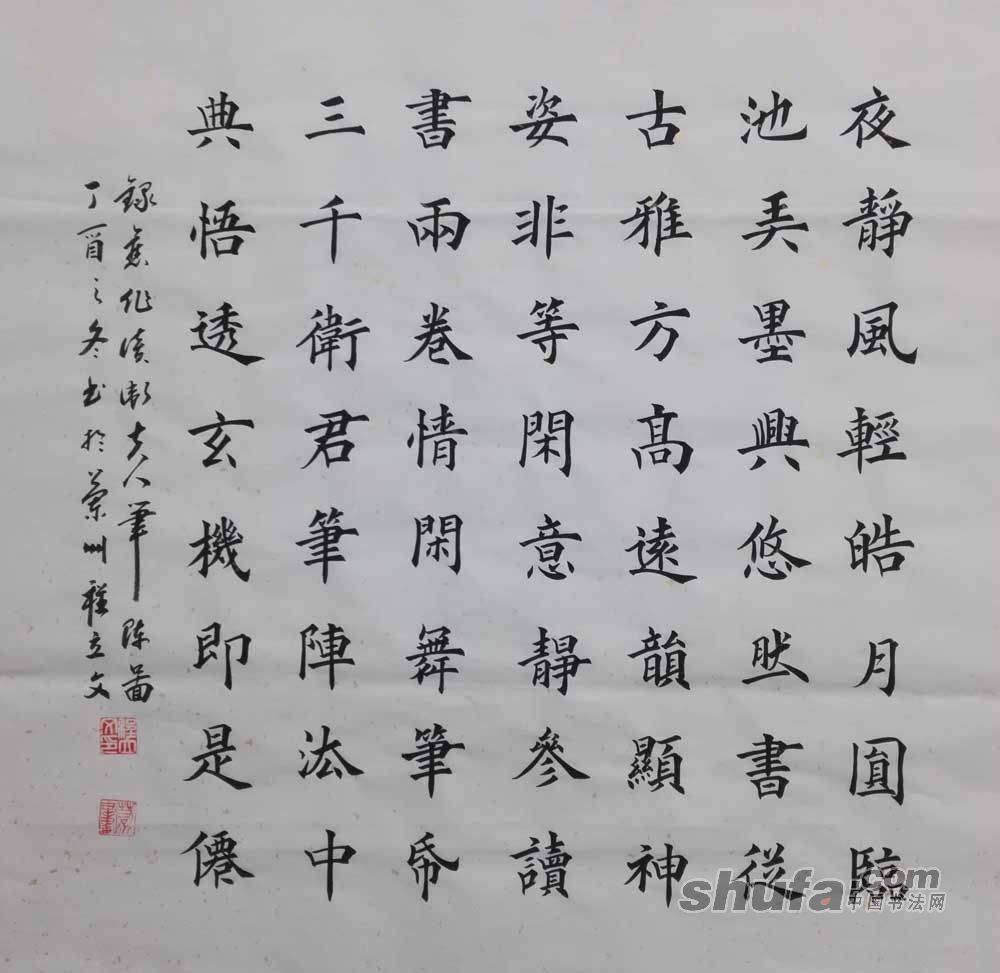 夜靜風輕皓月圓臨
池弄墨興悠然書從
古雅方高遠韻顯神
姿非等閑意靜參讀
書兩卷情閑舞筆帋
三千衛君筆陣法中
典悟透玄機即是僊
錄舊作讀衛夫人筆陣圖
丁酉之冬書於蘭州程立文
shufa.com
中国书法网